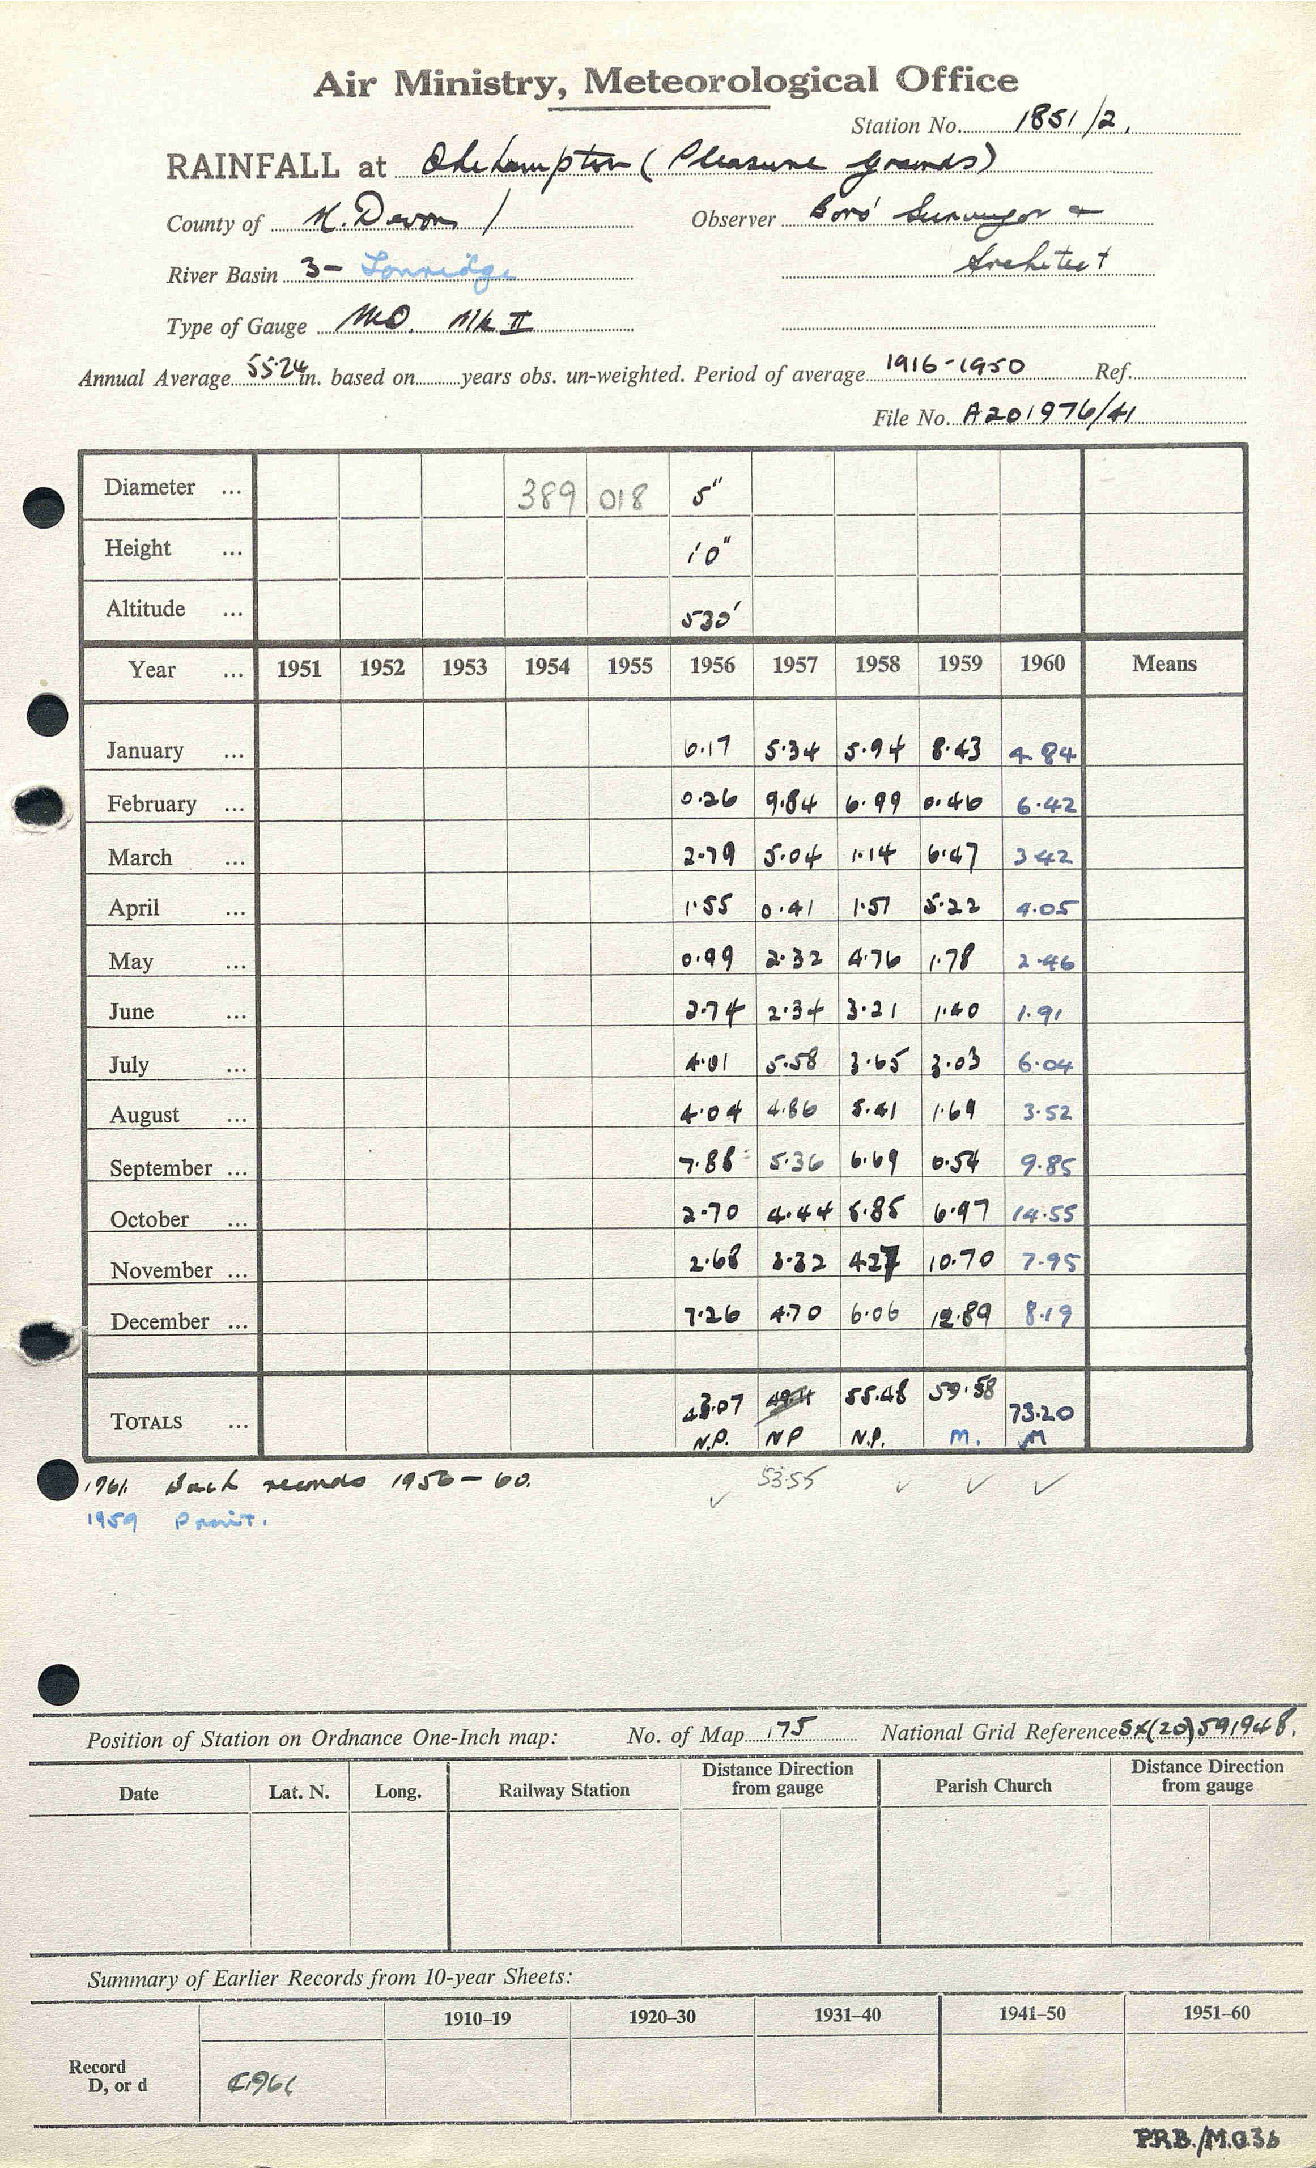 Air Ministry, Meteorological Office
Station No. 1851/2.
RAINFALL at Okehampton (Pleasure Grounds)
County of N. Devon / Observer Boro' Surveyor &
River Basin 3- Torridge Architect
Type of Gauge M.O. Mk II
Annual Average 55.24 in. based on years obs. un-weighted. Period of average 1916-1950 Ref.
File No. A201976/41
Diameter ... 389 018 5"
Height ... 10"
Altitude ... 530'
Year ... 1951 1952 1953 1954 1955 1956 1957 1958 1959 1960 Means
January ... 6.17 5.34 5.94 8.43 4.84
February ... 0.26 9.84 6.99 0.46 6.42
March ... 2.79 5.04 1.14 6.47 3.42
April ... 1.55 0.41 1.51 5.22 4.05
May ... 0.99 2.32 4.76 1.78 2.46
June ... 2.74 2.34 3.21 1.40 1.91
July ... 4.01 5.58 3.65 3.03 6.04
August ... 4.04 4.86 5.41 1.69 3.52
September ... 7.88 5.36 6.69 0.54 9.85
October ... 2.70 4.44 5.85 6.97 14.55
November ... 2.68 3.32 4.27 10.70 7.95
December ... 7.26 4.70 6.06 12.89 8.19
TOTALS ... 43.07 55.48 59.58 73.20
N.P. NP N.P. M. M
1961. Back records 1956-60. 53.55
1959 Permit.
Position of Station on Ordnance One-Inch map: No. of Map 175 National Grid Reference SX(20)591948.
Date Lat. N. Long. Railway Station Distance Direction from gauge Parish Church Distance Direction from gauge
Summary of Earlier Records from 10-year Sheets:
1910–19 1920–30 1931–40 1941–50 1951–60
Record
D, or d
P.R.B./M.O.3b